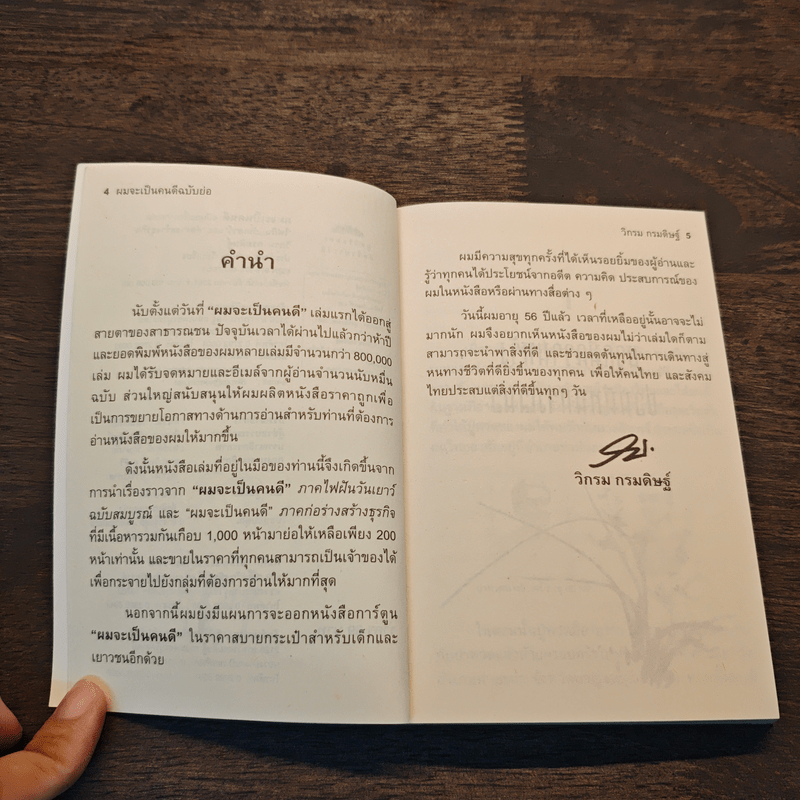 4 ผมจะเป็นคนดีฉบับย่อ
คำนำ
นับตั้งแต่วันที่ “ผมจะเป็นคนดี” เล่มแรกได้ออกสู่
สายตาของสาธารณชน ปัจจุบันเวลาได้ผ่านไปแล้วกว่าห้าปี
และยอดพิมพ์หนังสือของผมหลายเล่มมีจำนวนกว่า 800,000
เล่ม ผมได้รับจดหมายและอีเมล์จากผู้อ่านจำนวนนับหมื่น
ฉบับ ส่วนใหญ่สนับสนุนให้ผมผลิตหนังสือราคาถูกเพื่อ
เป็นการขยายโอกาสทางด้านการอ่านสำหรับท่านที่ต้องการ
อ่านหนังสือของผมให้มากขึ้น
ดังนั้นหนังสือเล่มที่อยู่ในมือของท่านนี้จึงเกิดขึ้นจาก
การนำเรื่องราวจาก “ผมจะเป็นคนดี” ภาคไฟฝันวันเยาว์
ฉบับสมบูรณ์ และ “ผมจะเป็นคนดี” ภาคก่อร่างสร้างธุรกิจ
ที่มีเนื้อหารวมกันเกือบ 1,000 หน้ามาย่อให้เหลือเพียง 200
หน้าเท่านั้น และขายในราคาที่ทุกคนสามารถเป็นเจ้าของได้
เพื่อกระจายไปยังกลุ่มที่ต้องการอ่านให้มากที่สุด
นอกจากนี้ผมยังมีแผนการจะออกหนังสือการ์ตูน
“ผมจะเป็นคนดี” ในราคาสบายกระเป๋าสำหรับเด็กและ
เยาวชนอีกด้วย
วิกรม กรมดิษฐ์ 5
ผมมีความสุขทุกครั้งที่ได้เห็นรอยยิ้มของผู้อ่านและ
รู้ว่าทุกคนได้ประโยชน์จากอดีต ความคิด ประสบการณ์ของ
ผมในหนังสือหรือผ่านทางสื่อต่าง ๆ
วันนี้ผมอายุ 56 ปีแล้ว เวลาที่เหลืออยู่นั้นอาจจะไม่
มากนัก ผมจึงอยากเห็นหนังสือของผมไม่ว่าเล่มใดก็ตาม
สามารถจะนำพาสิ่งที่ดี และช่วยลดต้นทุนในการเดินทางสู่
หนทางชีวิตที่ดียิ่งขึ้นของทุกคน เพื่อให้คนไทย และสังคม
ไทยประสบแต่สิ่งที่ดีขึ้นทุกๆ วัน
วิกรม กรมดิษฐ์